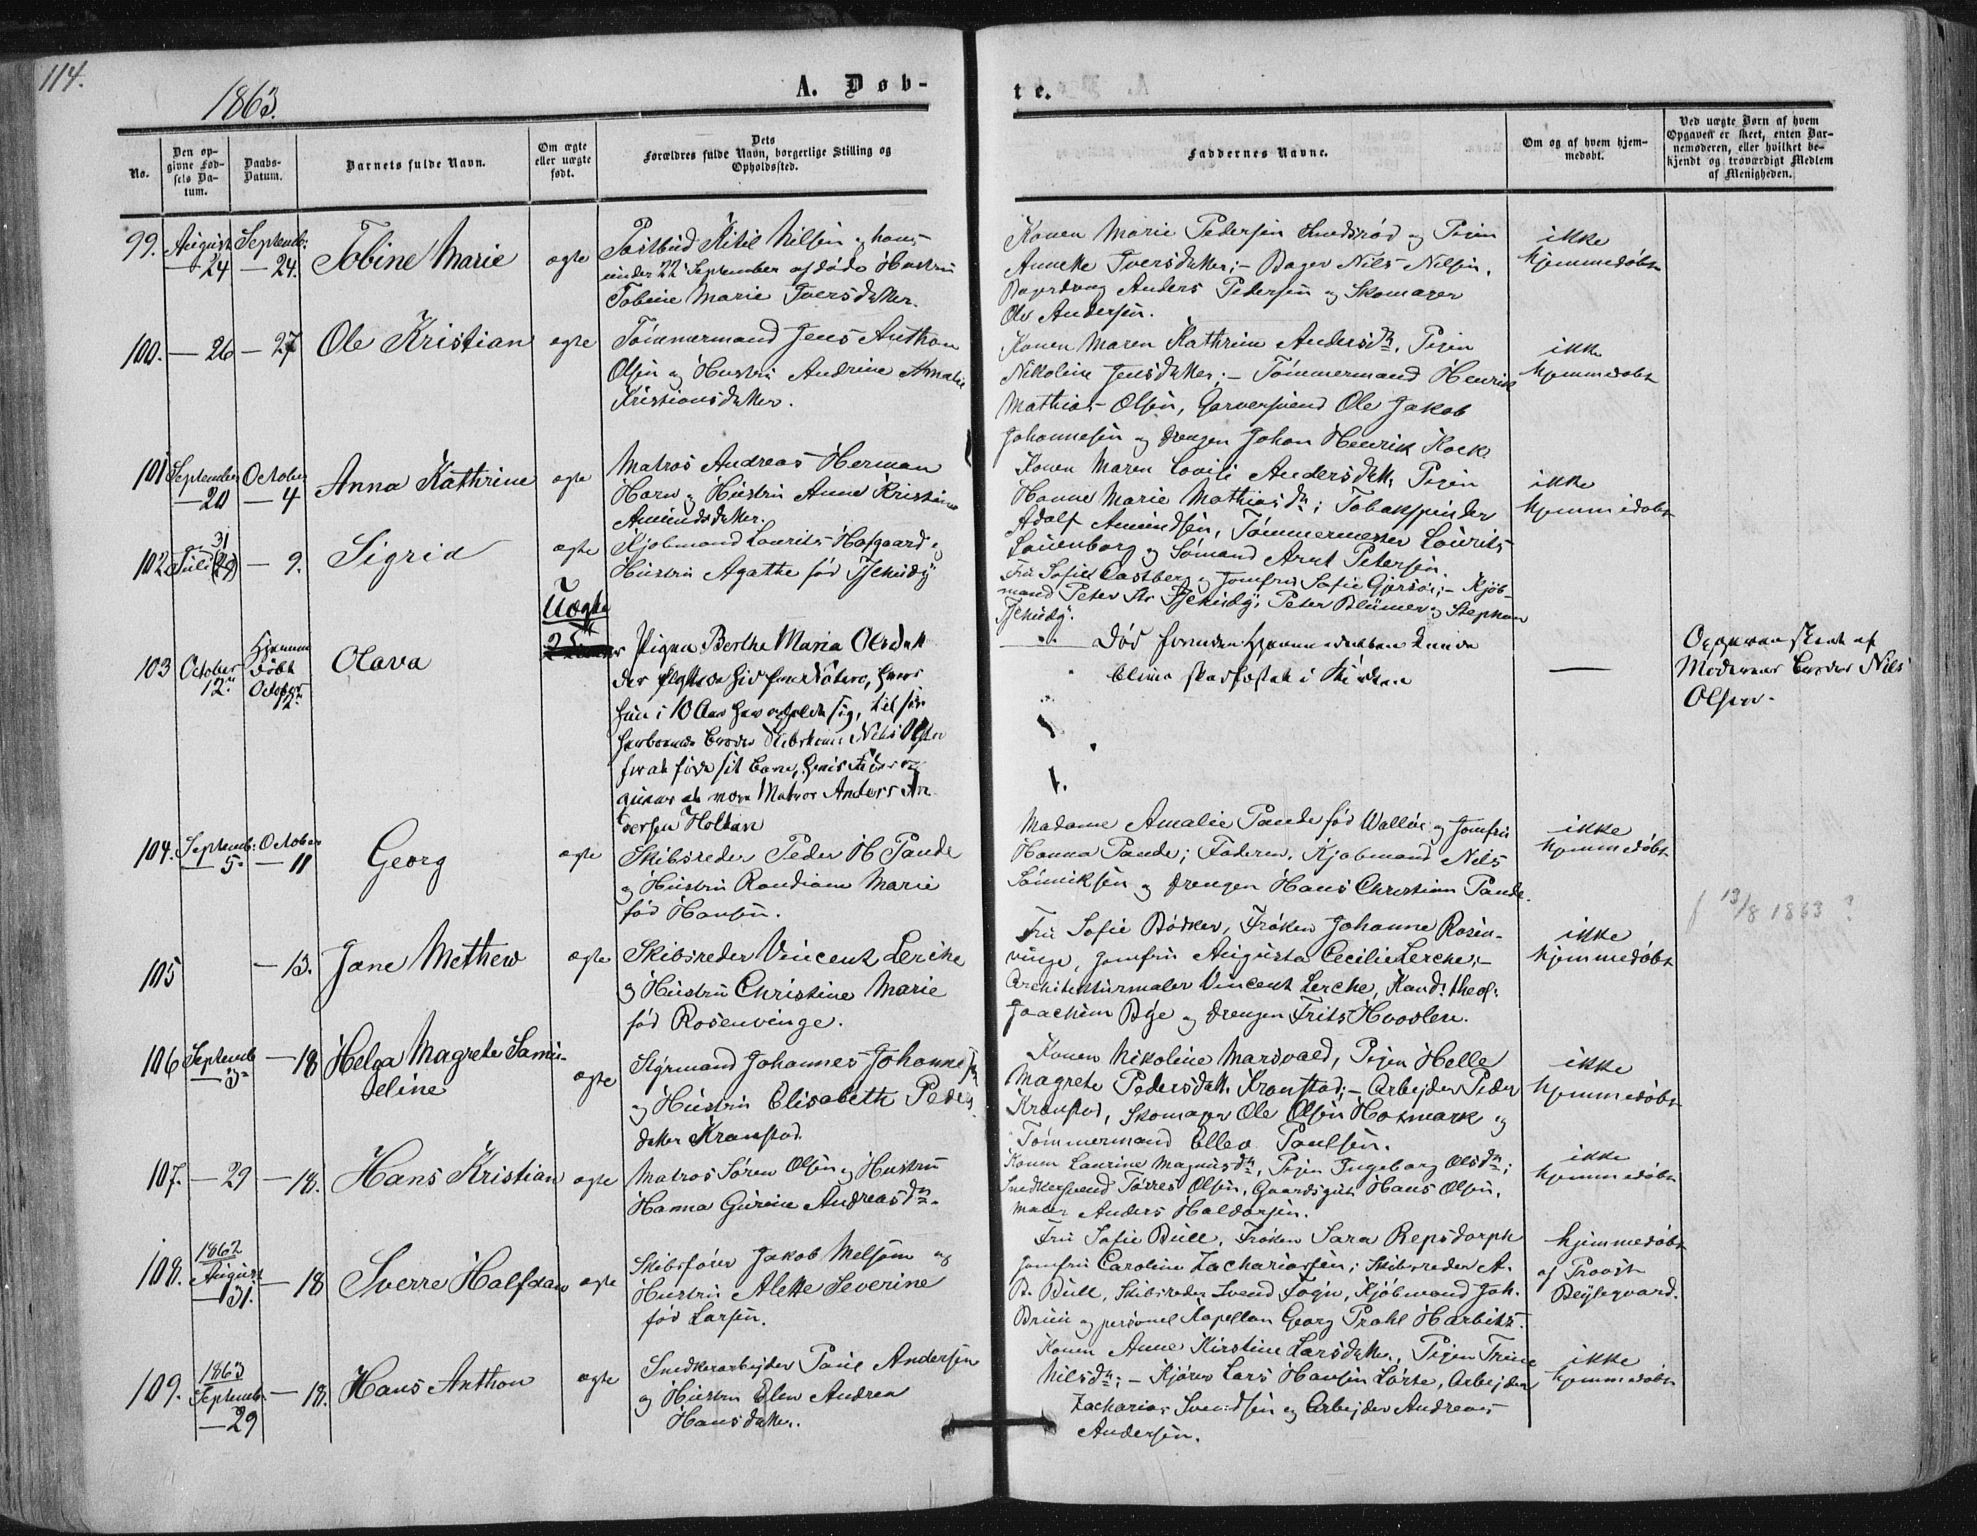 114.
1863.
A. Døb-
te.
No.
Den op-
givne Fød-
sels Da-
tum.
Daabs-
Datum.
Barnets fulde Navn.
Om ægte
eller uægte
født.
Dets
Forældres fulde Navn, borgerlige Stilling og
Opholdssted.
Faddernes Navne.
Om og af hvem hjem-
medøbt.
Ved uægte Børn af hvem
Opgaven er skeet, enten Bar-
nemoderen, eller hvilket be-
kjendt og troværdigt Medlem
af Menigheden.
99.
August
— 24
Septemb:
— 24.
Tobine Marie
ægte
Postbud Kitil Nilsen og hans
under 22 September afdøde Hustru
Tobine Marie Iversdatter.
Konen Marie Pedersen og Pigen
Anneke Iversdatter; – Bager Nils Nilsen,
Anders Pedersen og Skomager
Ole Andersen.
ikke
hjemmedøbt
100.
— 26
— 27
Ole Kristian
ægte
Tømmermand Jens Anthon
Olsen og Hustru Andrine Amalie
Kristiansdatter.
Konen Maren Kathrine Andersdtr, Pigen
Nikoline Jensdatter; – Tømmermand Henrik
Mathias Olsen, Garversvend Ole Jakob
Johannesen og Drengen Johan Henrik Kock
ikke
hjemmedøbt
101
September
— 20
October
— 4
Anna Kathrine
ægte
Matros Andreas Herman
Horn og Hustru Anne Kristine
Amundsdatter.
Konen Maren Lovise Andersdatt, Pigen
Hanne Marie Mathiasdtr; Tobakspinder
Adolf Amundsen, Tømmermester Lourits
Lauenborg og Sømand Arnt Petersen
ikke
hjemmedøbt
102
31
Juli (29)
— 9.
Sigrid
ægte
Kjøbmand Lourits Hofgaard og
Hustru Agathe fød Tschudy
Fru Sofie Castberg og Jomfru Sofie Gjersøe; – Kjøb-
mand Peter Tschudy, Peter Blümer og Stephan
Tschudy.
103
October
12te
Hjemme
døbt
October
12te
Olava
Uægte
Pigen Berthe Maria Olsdatt
hun i 10 Aar har opholdt sig, til sin
herboende Broder Nils Olsen
for at føde sit Barn, hvis Fader op-
gives at være Matros Anders An-
dersen Holtan
Død forinden Hjemmedaaben kunde
blive stadfæstet i Kirken
—
Opgaven skeet af
Moderens Broder Nils
Olsen.
104.
Septemb:
— 5.
October
— 11
Georg
ægte
Skibsreder Peder H Paude
og Hustru Randiane Marie
fød Hansen.
Madame Amalie Paude fød Walløe og Jomfru
Hanna Paude; Faderen, Kjøbmand Nils
og Drengen Hans Christian Paude.
ikke
hjemmedøbt
105
— 13.
Jane Methew
ægte
Skibsreder Vincent Lerche
og Hustru Christine Marie
fød Rosenvinge.
Fru Sofie Bødker, Frøken Johanne Rosen-
vinge, Jomfru Augusta Cecilie Lerche; –
Architekturmaler Vincent Lerche, Kand: theol:
Joachim Bye og Drengen Frits Hvoslev.
ikke
hjemmedøbt
f 13/8 1863 ?
106
Septemb
— 3
— 18
Helga Magrete Samu-
eline
ægte
Styrmand Johannes Johannesen
og Hustru Elisabeth Peders
datter Kranstad.
Konen Nikoline Marsvald, Pigen Helle
Magrete Pedersdatt. Kranstad; – Arbejder Peder
Kranstad, Skomager Ole Olsen Hotmark og
Tømmermand Ellev Paulsen.
ikke
hjemmedøbt
107.
— 29
— 18.
Hans Kristian
ægte
Matros Søren Olsen og Hustru
Hanna Gurine Andreasdtr.
Konen Laurine Magnusdtr, Pigen Ingeborg Olsdtr;
Snedkersvend Tørres Olsen, Gaardsgut Hans Olsen,
Maler Anders Haldorsen.
ikke
hjemmedøbt
108.
1862
August
— 31.
— 18
Sverre Halfdan
ægte
Skibsfører Jakob Melsom og
Hustru Alette Severine
fød Larsen.
Fru Sofie Bull, Frøken Sara Repsdorph
Jomfru Caroline Zachariassen; Skibsreder A.
B. Bull, Skibsreder Svend Foyn, Kjøbmand Joh.
Bruu og personel Kapellan Georg Prahl Harbitz.
hjemmedøbt
af Provst
Bejsegaard.
109.
1863
Septemb.
— 29
— 18.
Hans Anthon
ægte
Snedkerarbejder Paul Andersen
og Hustru Elen Andrea
Hansdatter.
Konen Anne Kirstine Larsdatter, Pigen Trine
Nilsdtr; – Kjører Lars Hansen Lørte, Arbejder
Zacharias Svendsen og Arbejder Andreas
Andersen.
ikke
hjemmedøbt